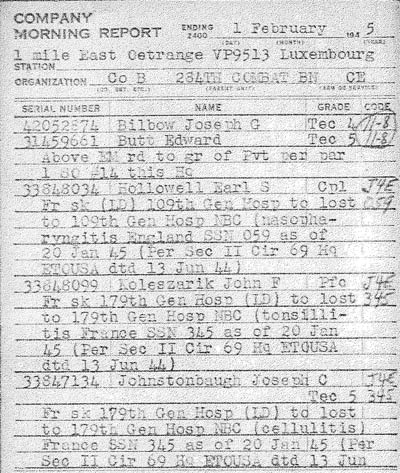 COMPANY
MORNING REPORT ENDING 2400 1 February 1945
(DAY) (MONTH) (YEAR)
1 mile East Oetrange VP9513 Luxembourg
STATION
ORGANIZATION Co B 284TH COMBAT BN CE
(CO, DET, ETC.) (PARENT UNIT) (ARM OR SERVICE)
SERIAL NUMBER NAME GRADE CODE
42052874 Bilbow Joseph G Tec 4
31459661 Butt Edward Tec 5
Above EM rd to gr of Pvt per par
1 SO #14 this Hq
33848034 Hollowell Earl S Cpl J4E
Fr sk (LD) 109th Gen Hosp to lost 059
to 109th Gen Hosp NBC (nasopha-
ryngitis England SSN 059 as of
20 Jan 45 (Per Sec II Cir 69 Hq
ETOUSA dtd 13 Jun 44)
33848099 Koleszarik John F Pfc J4E
Fr sk 179th Gen Hosp (LD) to lost 345
to 179th Gen Hosp NBC (tonsilli-
tis France SSN 345 as of 20 Jan
45 (Per Sec II Cir 69 Hq ETOUSA
dtd 13 Jun 44)
33847134 Johnstonbaugh Joseph C J4E
Tec 5 345
Fr sk 179th Gen Hosp (LD) to lost
to 179th Gen Hosp NBC (cellulitis)
France SSN 345 as of 20 Jan 45 (Per
Sec II Cir 69 Hq ETOUSA dtd 13 Jun